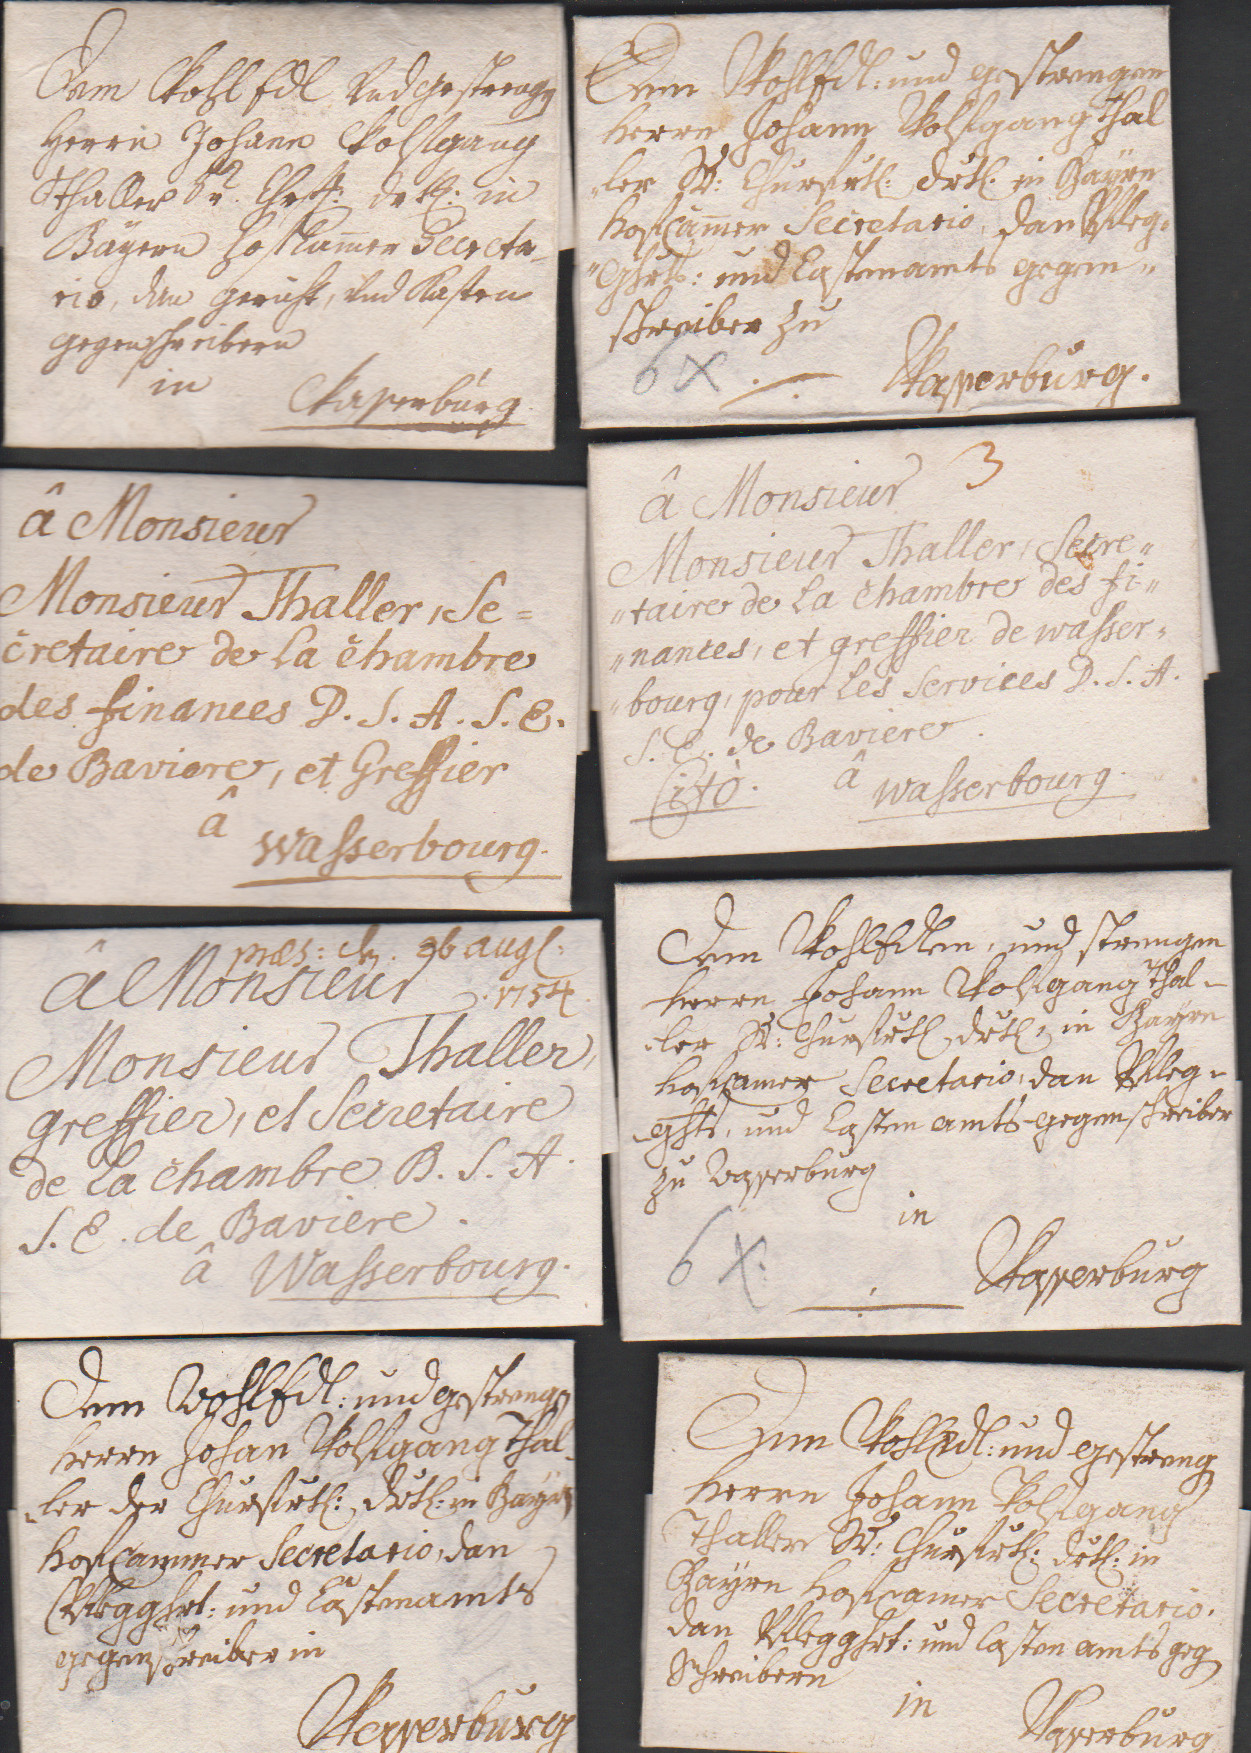 Dem Wohl Edl und gestrengen
Herrn Johann Wolfgang
Thaller Sr. Chrftl: drtl: in
Bäyern hofkammer Secreta-
rio, dan gericht, und Kasten
gegenschreibern
in Wasserburg.
Dem WohlEdl: und gestrengen
herrn Johann Wolfgang Thal
ler Sr: Churfrtl: drtl: in Bayrn
hofcammer Secretario, dan Pfleg-
"ghrts: und Castenamts gegen"
schreiber zu
6 x Wasserburg.
â Monsieur
Monsieur Thaller, Se=
cretaire de La chambre
des finances D. S. A. S. E.
de Baviere, et Greffier
â
Wasserbourg.
3
â Monsieur
Monsieur Thaller, Secre"
"taire de La chambre des fi"
"nances, et greffier de wasser"
"bourg, pour Les Services D. S. A.
S. E. de Baviere.
Cito. â wasserbourg.
præs: den 26 augl:
1754.
â Monsieur
Monsieur Thaller,
greffier, et Secretaire
de La chambre D. S. A.
S. E. de Baviere.
â Wasserbourg.
Dem WohlEdlen, und strengen
herrn Johann Wolfgang Thal-
ler Sr: Churfrtl drtl: in Bayrn
hofcamer Secretario, dan Pfleg-
ghts, und Casten amts-gegenschreiber
zu Wasserburg
in
6 x. Wasserburg
Dem WohlEdl: und gestrengen
herrn Johan Wolfgang Thal
ler der Churfrtl: drtl: in Bayrn
hofcammer Secretario, dan
Pflegghrt: und Castenamts
gegenschreiber in
Wasserburg
Dem WohlEdl: und gestreng
herrn Johann Wolfgang
Thaller Sr: Churfrtl: drtl: in
Bayrn hofcamer Secretario.
dan Pflegghrt: und Casten amts geg
Schreibern
in Wasserburg